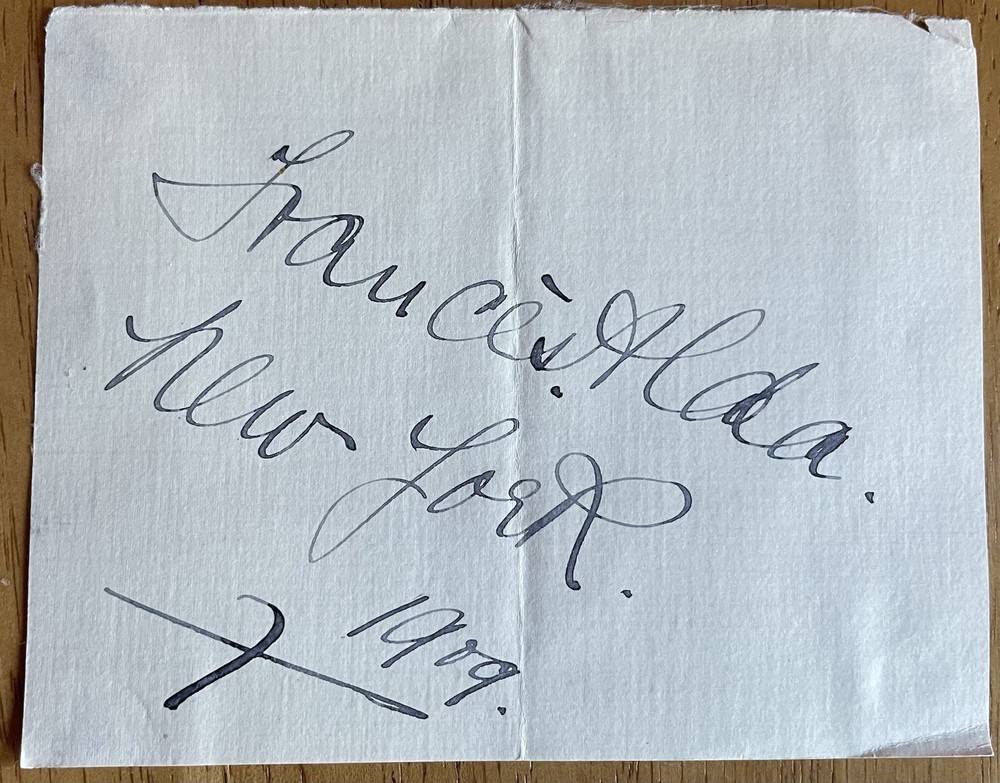 Francès. Alda.
New York.
1909.